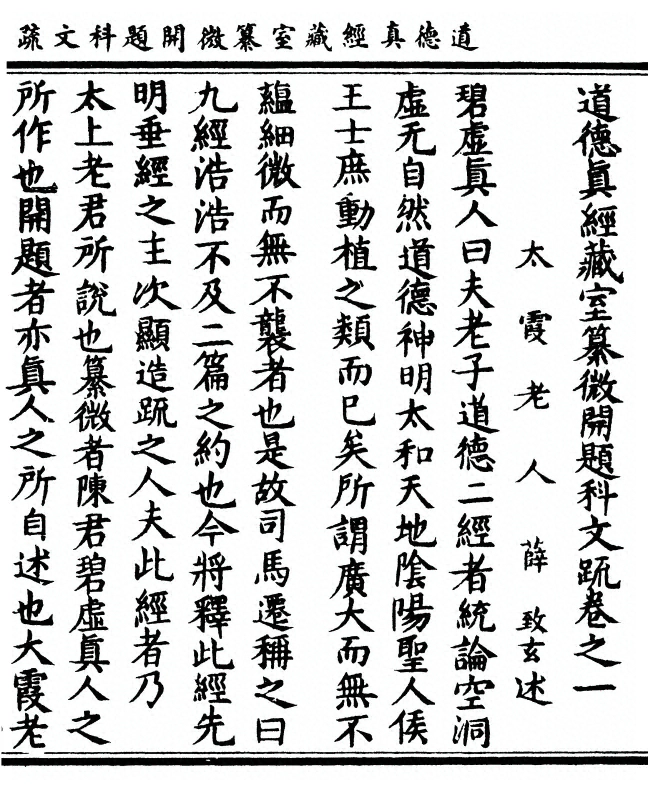 道德真經藏室纂微開題科文疏
道德眞經藏室纂微開題科文䟽卷之一
太霞老人薛致玄述
碧虛眞人曰夫老子道德二經者統論空洞
虛无自然道德神明太和天地陰陽聖人侯
王士庶動植之類而已矣所謂廣大而無不
蘊細微而無不襲者也是故司馬遷稱之曰
九經浩浩不及二篇之約也今將釋此經先
明垂經之主次顯造䟽之人夫此經者乃
太上老君所說也纂微者陳君碧虛眞人之
所作也開題者亦眞人之所自述也大霞老